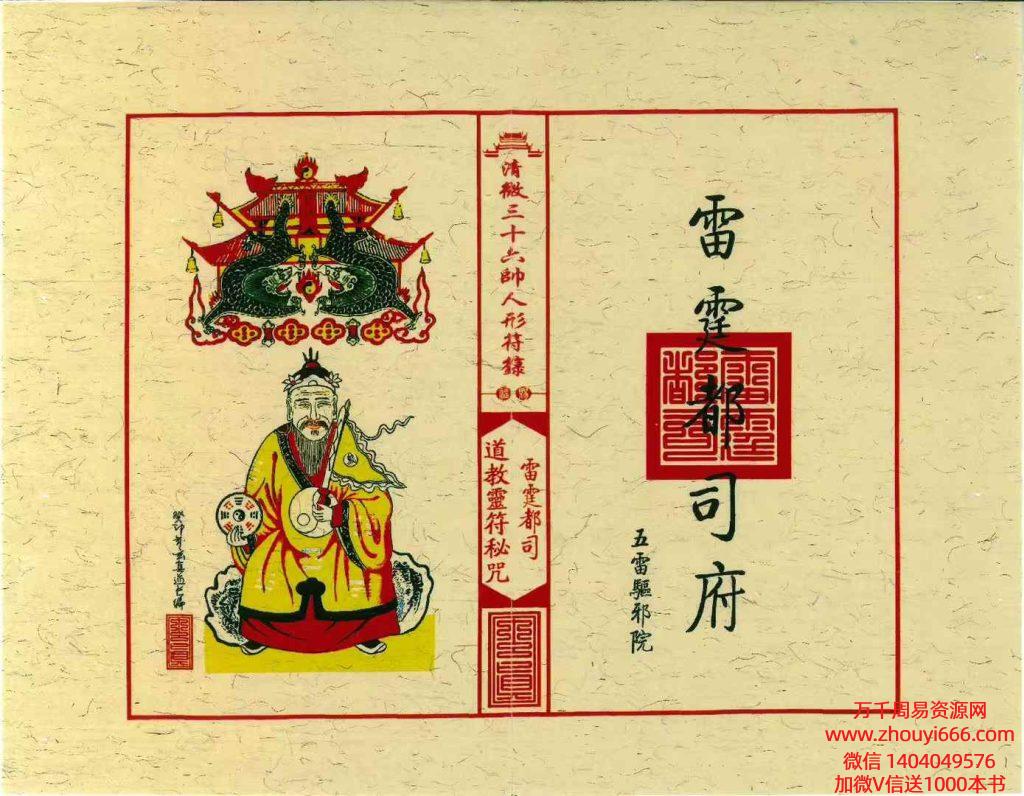 雷霆都司府
五雷驅邪院
清微三十六帥人形符籙
雷霆都司
道教靈符秘咒
雷霆都司
癸卯年
萬千周易资源网
www.zhouyi666.com
微信 1404049576
加微V信送1000本书